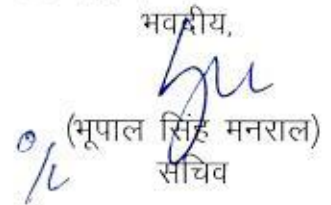 भवदीय,
(भूपाल सिंह मनराल)
सचिव